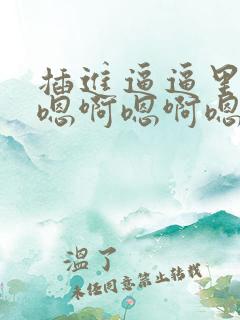 插進逼逼里
嗯啊嗯啊嗯
溫了
未任同意禁止转载